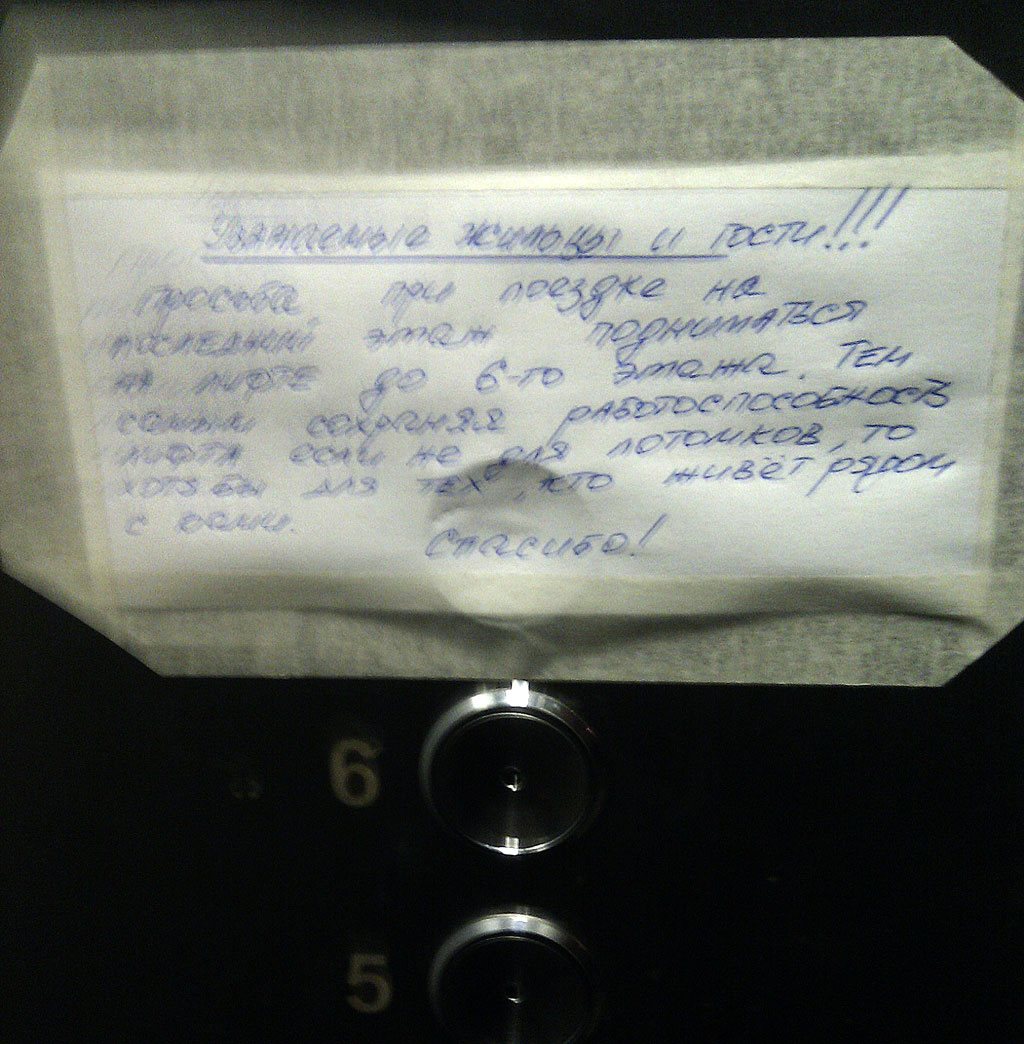 Уважаемые жильцы и гости!!!
Просьба при поездке на
последний этаж подниматься
на лифте до 6-го этажа. Тем
самым сохраняя работоспособность
лифта если не для потомков, то
хотя бы для тех, кто живёт рядом
с вами.
Спасибо!
6
5